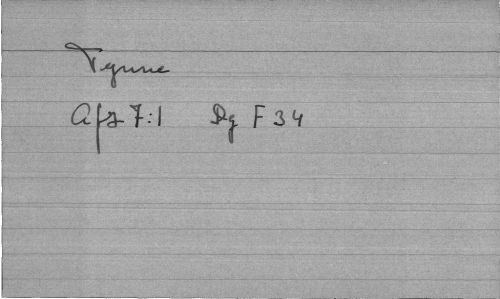 Tynne
Afz 7:1 Dg F 34